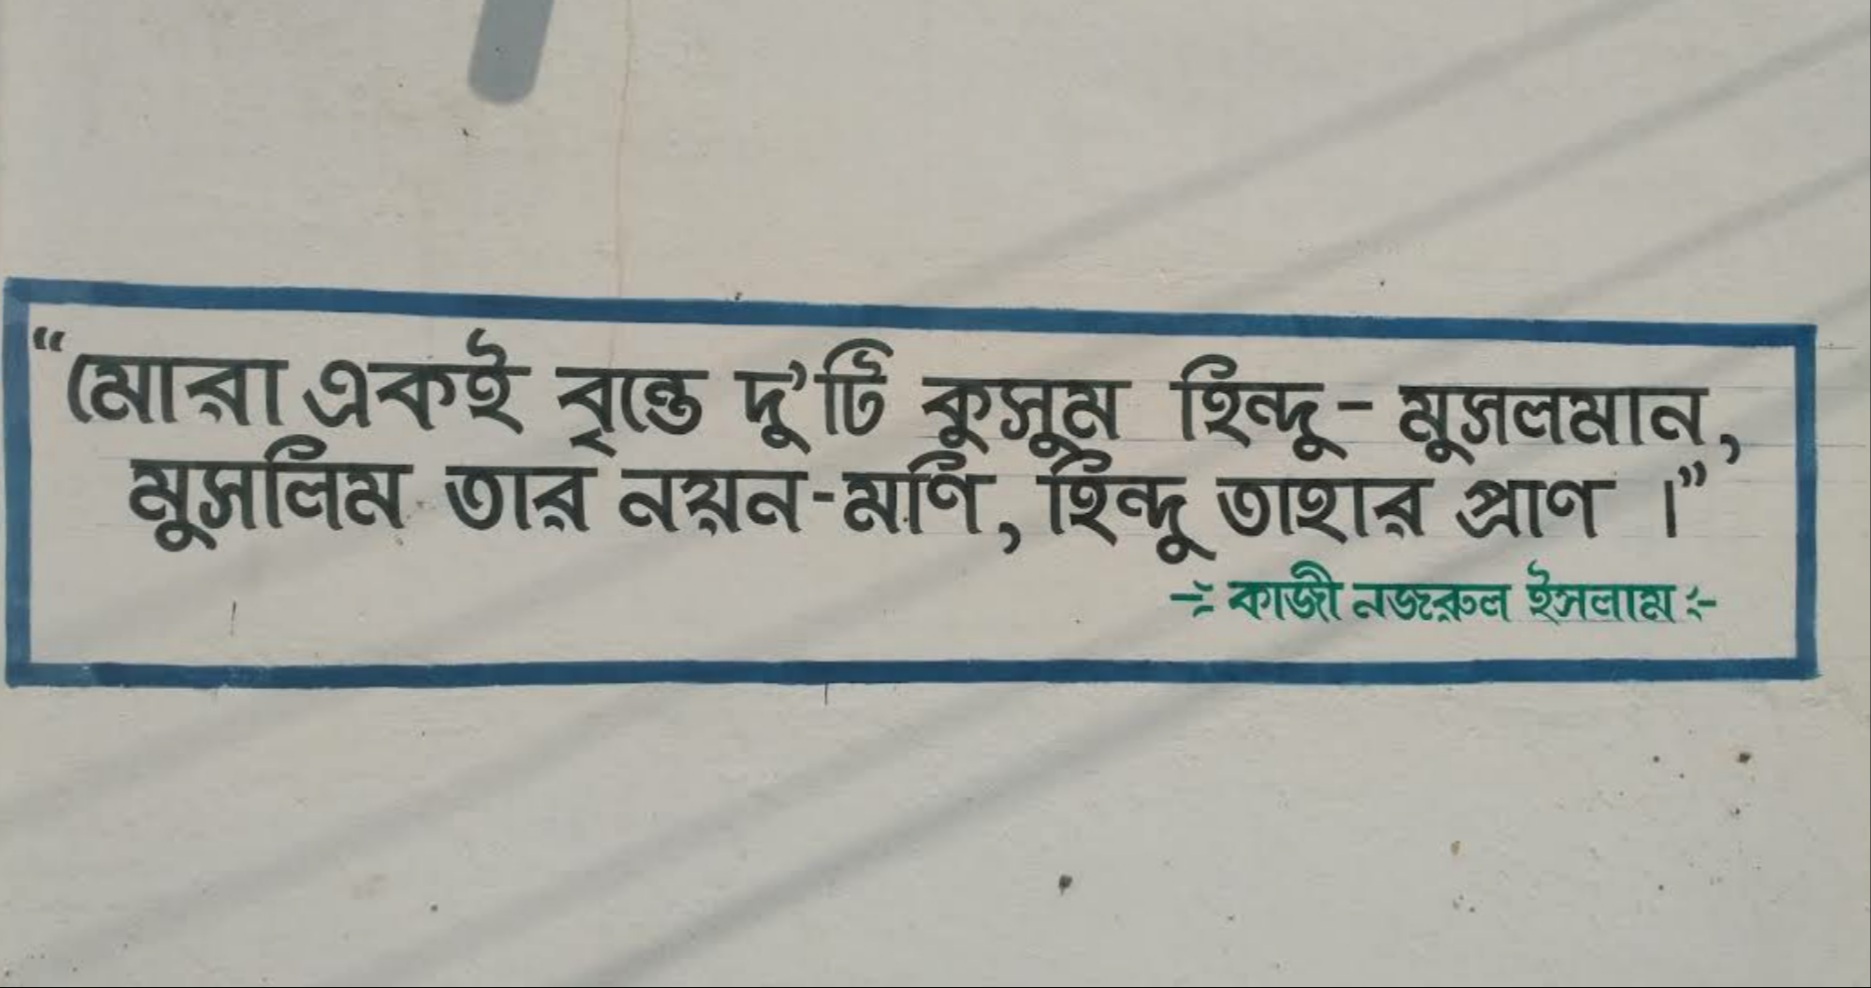 “মোরা একই বৃন্তে দু’টি কুসুম হিন্দু - মুসলমান,
মুসলিম তার নয়ন-মণি, হিন্দু তাহার প্রাণ ।”
-ঃ কাজী নজরুল ইসলাম ঃ-